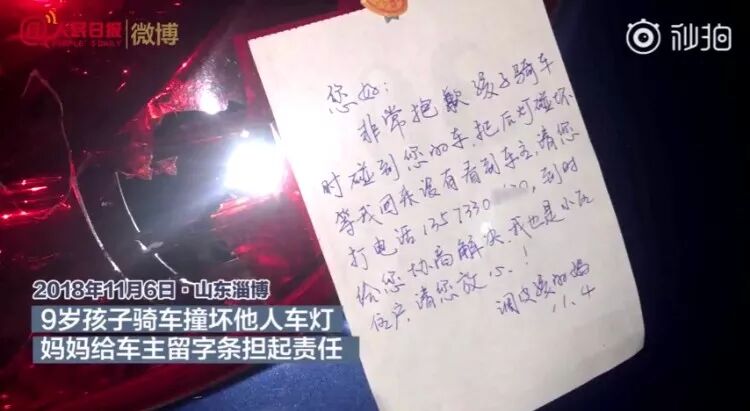 人民日报
PEOPLE'S DAILY
微博
秒拍
您好:
非常抱歉孩子骑车
时碰到您的车,把后灯碰坏
等我回来没有看到车主,请您
打电话1357330 0,到时
给您协商解决.我也是小区
住户,请您放心!
调皮孩的妈
11.4
2018年11月6日·山东淄博
9岁孩子骑车撞坏他人车灯
妈妈给车主留字条担起责任